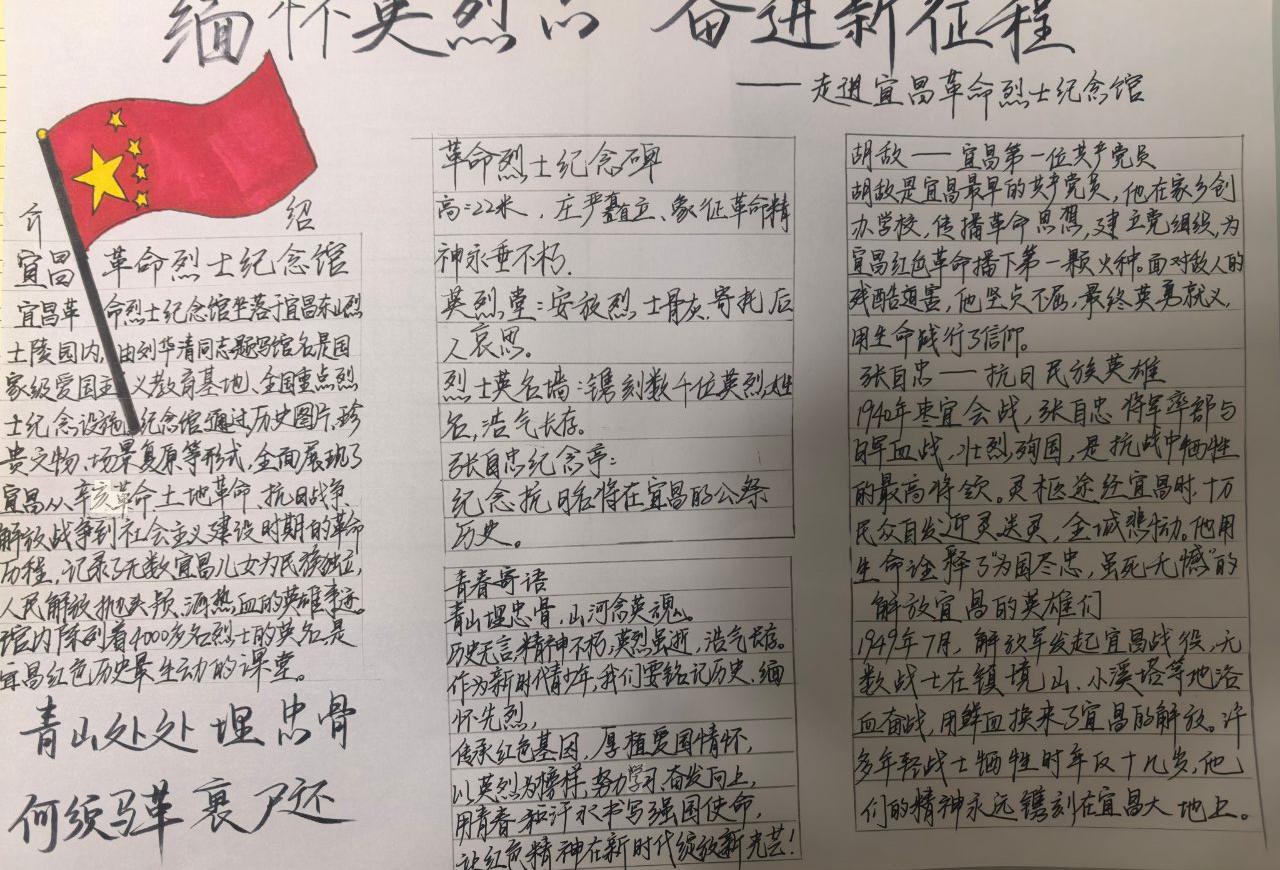 缅怀英烈 奋进新征程
——走进宜昌革命烈士纪念馆
介 绍
宜昌革命烈士纪念馆
宜昌革命烈士纪念馆坐落于宜昌东山烈
士陵园内，由刘华清同志题写馆名是国
家级爱国主义教育基地、全国重点烈
士纪念设施。纪念馆通过历史图片、珍
贵文物、场景复原等形式，全面展现了
宜昌从辛亥革命土地革命、抗日战争、
解放战争到社会主义建设时期的革命
历程，记录了无数宜昌儿女为民族独立，
人民解放抛头颅、洒热血的英雄事迹。
馆内陈列着4000多名烈士的英名，是
宜昌红色历史最生动的课堂。
青山处处埋忠骨
何须马革裹尸还
革命烈士纪念碑
高=22米，庄严矗立、象征革命精
神永垂不朽.
英烈堂：安放烈士骨灰.寄托后
人哀思。
烈士英名墙：镌刻数千位英烈姓
名，浩气长存。
张自忠纪念亭：
纪念抗日名将在宜昌的公祭
历史。
青春寄语
青山埋忠骨，山河念英魂。
历史无言，精神不朽，英烈虽逝，浩气长存。
作为新时代青少年，我们要铭记历史、缅
怀先烈，
传承红色基因，厚植爱国情怀，
以英烈为榜样，努力学习、奋发向上，
用青春和汗水书写强国使命，
让红色精神在新时代绽放新光芒！
胡敌——宜昌第一位共产党员
胡敌是宜昌最早的共产党员，他在家乡创
办学校，传播革命思想，建立党组织，为
宜昌红色革命播下第一颗火种。面对敌人的
残酷迫害，他坚贞不屈，最终英勇就义，
用生命践行了信仰。
张自忠——抗日民族英雄
1940年枣宜会战，张自忠将军率部与
日军血战，壮烈殉国，是抗战中牺牲
的最高将领。灵柩途经宜昌时，十万
民众自发迎灵送灵，全城悲恸。他用
生命诠释了“为国尽忠，虽死无憾”的
解放宜昌的英雄们
1949年7月，解放军发起宜昌战役，无
数战士在镇境山、小溪塔等地浴
血奋战，用鲜血换来了宜昌的解放。许
多年轻战士牺牲时年仅十几岁，他
们的精神永远镌刻在宜昌大地上。